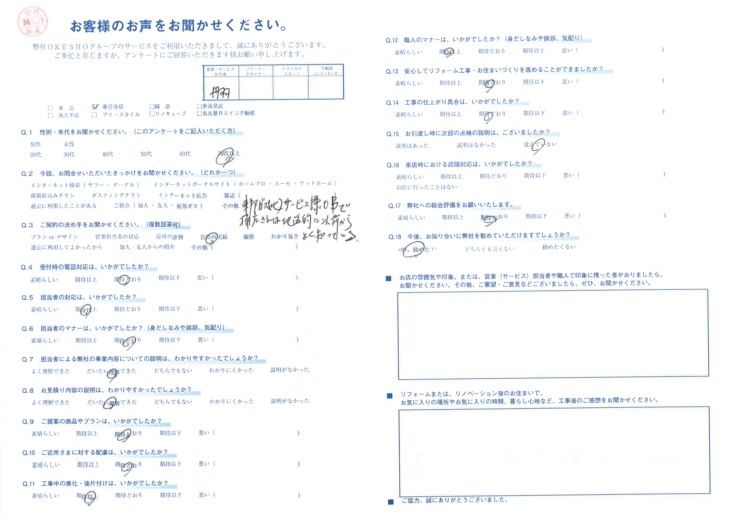 お客様のお声をお聞かせください。
弊付OKESHOグループのサービスをご利用いただきまして、誠にありがとうございます。
ご多忙と存じますが、アンケートにご回答いただきます様お願い申し上げます。
丹羽
□ 本店 ☑ 春日井店 □ 緑店 □ 多治見店
□ 長久手店 □ アイ・スタイル □ リノキューブ □ 名古屋Rエイジ不動産
Q.1 性別・年代をお聞かせください。(このアンケートをご記入いただく方)
男性 女性
20代 30代 40代 50代 60代 70代以上
Q.2 今回、お問合せいただいたきっかけをお聞かせください。(どれか一つ)
インターネット検索(ヤフー・グーグル) インターネットポータルサイト(ホームプロ・スーモ・アットホーム)
新聞折込みチラシ ポスティングチラシ インターネット広告 雑誌( )
過去に利用したことがある ご紹介(知人・友人・東邦ガス) その他
Q.3 ご契約の決め手をお聞かせください。(複数回答可)
プラン or デザイン 営業担当者の対応 近所の評判 会社の信頼 価格 わかり易さ
過去に利用してよかったから 知人・友人からの紹介 その他( )
Q.4 受付時の電話対応は、いかがでしたか?
素晴らしい 期待以上 期待どおり 期待以下 悪い( )
Q.5 担当者の対応は、いかがでしたか?
素晴らしい 期待以上 期待どおり 期待以下 悪い( )
Q.6 担当者のマナーは、いかがでしたか?(身だしなみや挨拶、気配り)
素晴らしい 期待以上 期待どおり 期待以下 悪い( )
Q.7 担当者による弊社の事業内容についての説明は、わかりやすかったでしょうか?
よく理解できた だいたい理解できた どちらでもない わかりにくかった 説明がなかった
Q.8 お見積り内容の説明は、わかりやすかったでしょうか?
よく理解できた だいたい理解できた どちらでもない わかりにくかった 説明がなかった
Q.9 ご提案の商品やプランは、いかがでしたか?
素晴らしい 期待以上 期待どおり 期待以下 悪い( )
Q.10 ご近所さまに対する配慮は、いかがでしたか?
素晴らしい 期待以上 期待どおり 期待以下 悪い( )
Q.11 工事中の美化・後片付けは、いかがでしたか?
素晴らしい 期待以上 期待どおり 期待以下 悪い( )
Q.12 職人のマナーは、いかがでしたか?(身だしなみや挨拶、気配り)
素晴らしい 期待以上 期待どおり 期待以下 悪い( )
Q.13 安心してリフォーム工事・お住まいづくりを進めることができましたか?
素晴らしい 期待以上 期待どおり 期待以下 悪い( )
Q.14 工事の仕上がり具合は、いかがでしたか?
素晴らしい 期待以上 期待どおり 期待以下 悪い( )
Q.15 お引渡し時に次回の点検の説明は、ございましたか?
説明はあった 説明はなかった 覚えていない
Q.16 来店時における店頭対応は、いかがでしたか?
素晴らしい 期待以上 期待どおり 期待以下 悪い( )
お店に行ったことはない
Q.17 弊社への総合評価をお願いいたします。
素晴らしい 期待以上 期待どおり 期待以下 悪い( )
Q.18 今後、お知り合いに弊社を勧めていただけますでしょうか?
どちらとも言えない 勧めたくない
■ お店の雰囲気や印象、または、営業(サービス)担当者や職人で印象に残った者がおりましたら、
お聞かせください。その他、ご要望・ご意見などございましたら、ぜひ、お聞かせください。
■ リフォームまたは、リノベーション後のお住まいで、
お気に入りの場所やお気に入りの時間、暮らし心地など、工事後のご感想をお聞かせください。
■ ご協力、誠にありがとうございました。